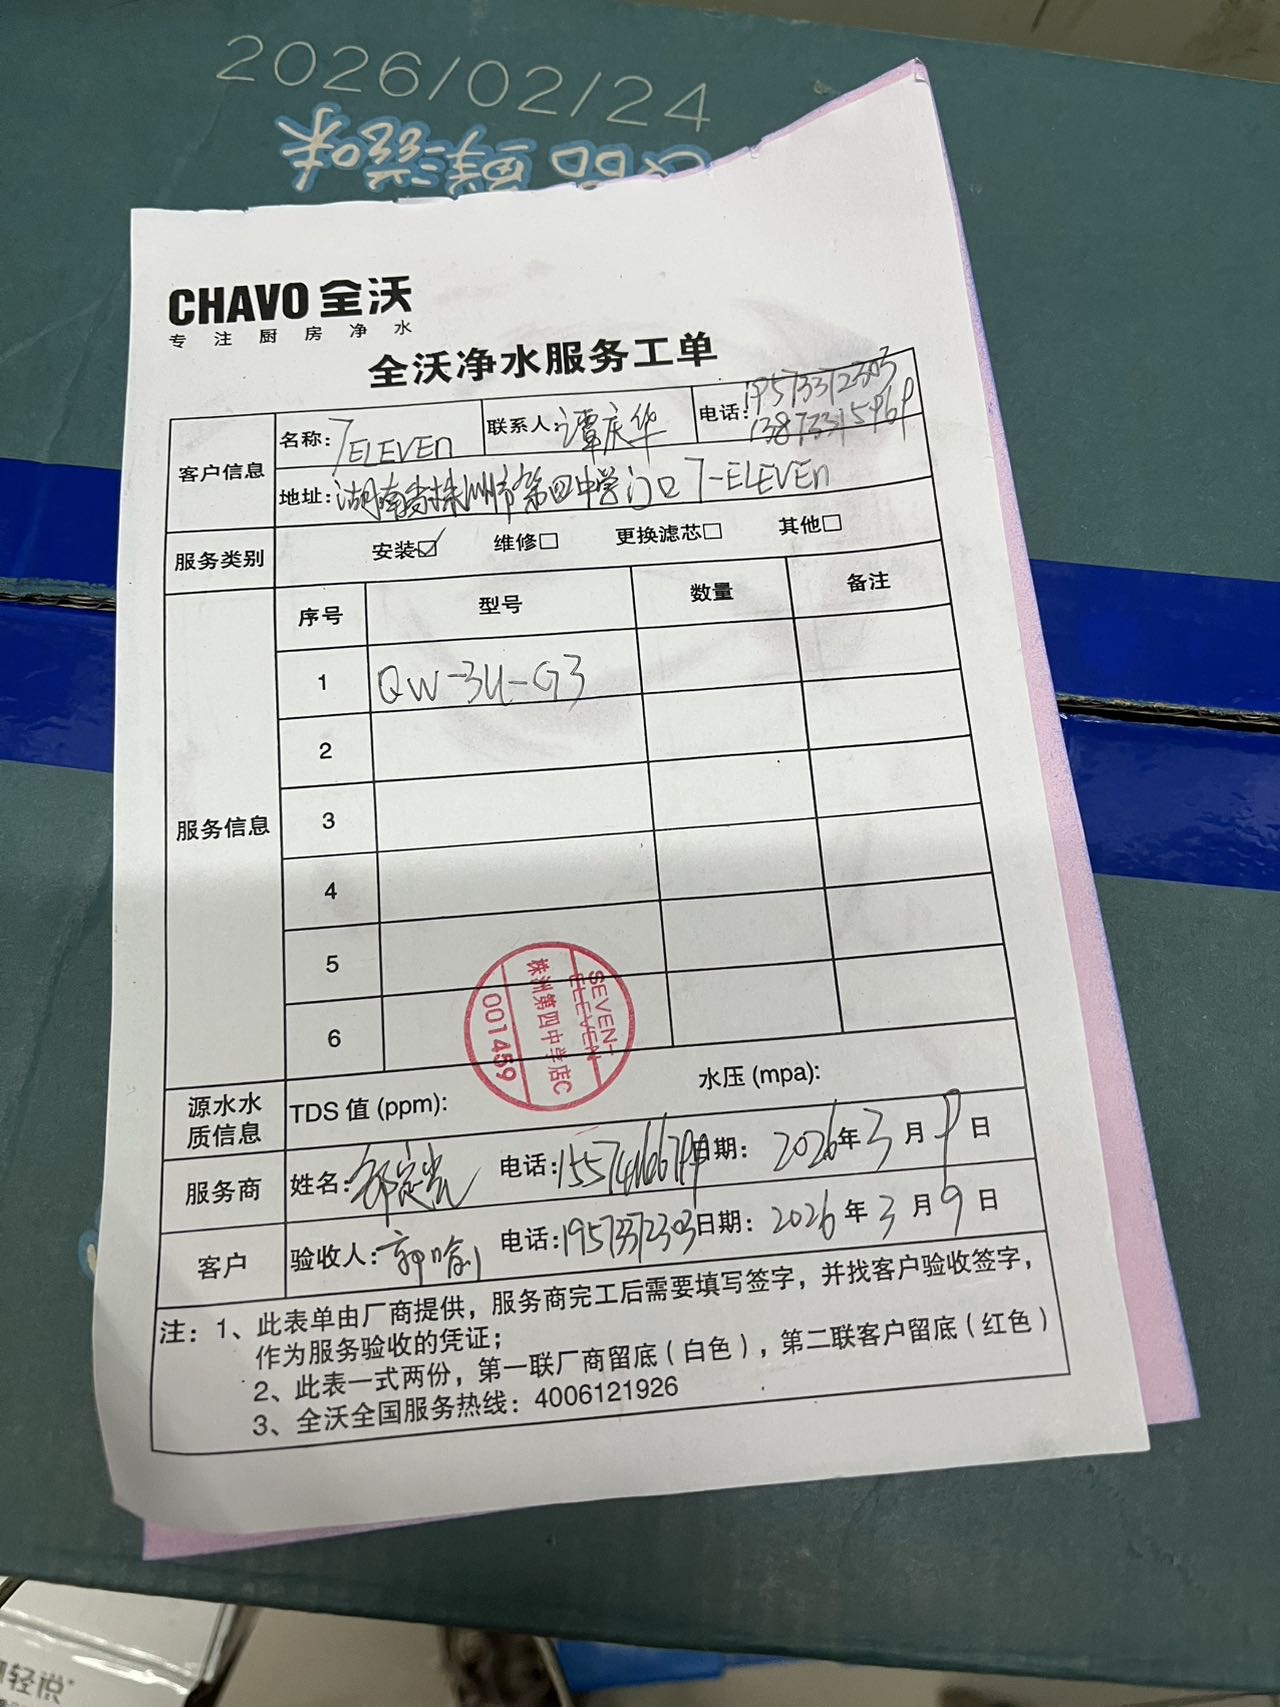 2026/02/24
CHAVO 全沃
专注厨房净水
全沃净水服务工单
客户信息
名称: 7 ELEVEn
联系人: 谭庆华
电话: 19573312303
地址: 湖南省株洲市第四中学门口 7-ELEVEn
服务类别
安装☑ 维修☐ 更换滤芯☐ 其他☐
服务信息
序号 型号 数量 备注
1 QW-3U-G3
2
3
4
5
6
SEVEN-
ELEVEN
株洲第四中学店C
001459
源水水质信息
TDS 值 (ppm): 水压 (mpa):
服务商
姓名: 电话: 日期: 2026年 3 月 9 日
客户
验收人: 电话: 19573312303 日期: 2026 年 3 月 9 日
注: 1、此表单由厂商提供，服务商完工后需要填写签字，并找客户验收签字，
作为服务验收的凭证；
2、此表一式两份，第一联厂商留底（白色），第二联客户留底（红色）
3、全沃全国服务热线：4006121926
轻悦